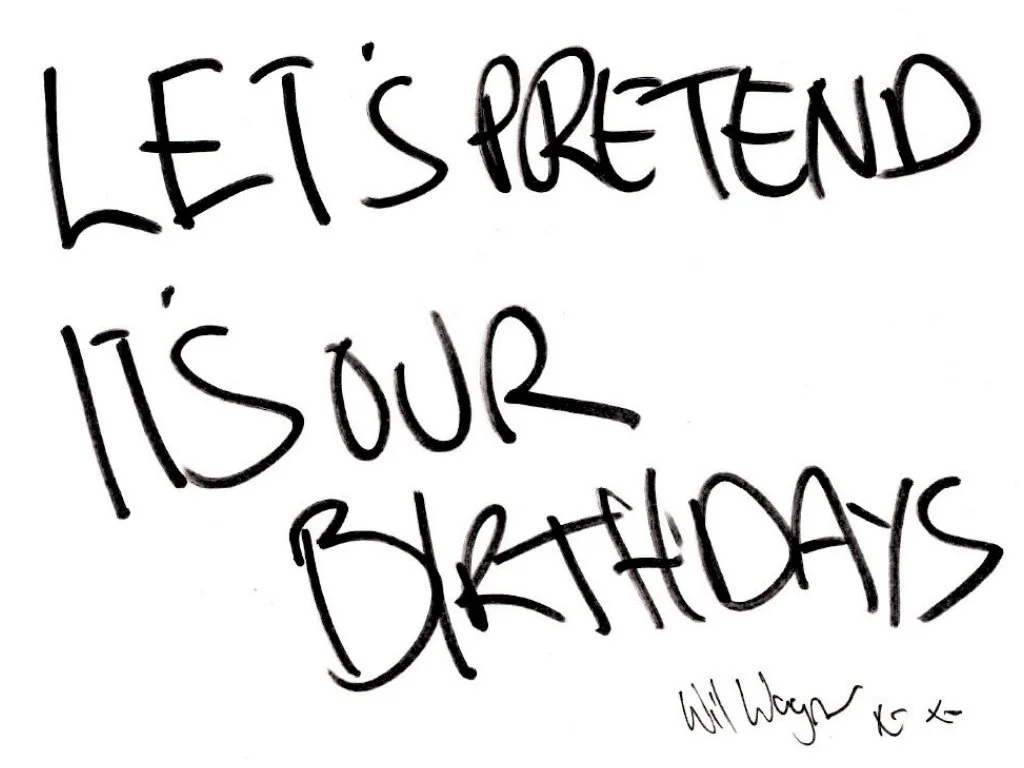 LET'S PRETEND
IT'S OUR
BIRTHDAYS
Wil Wagner x x